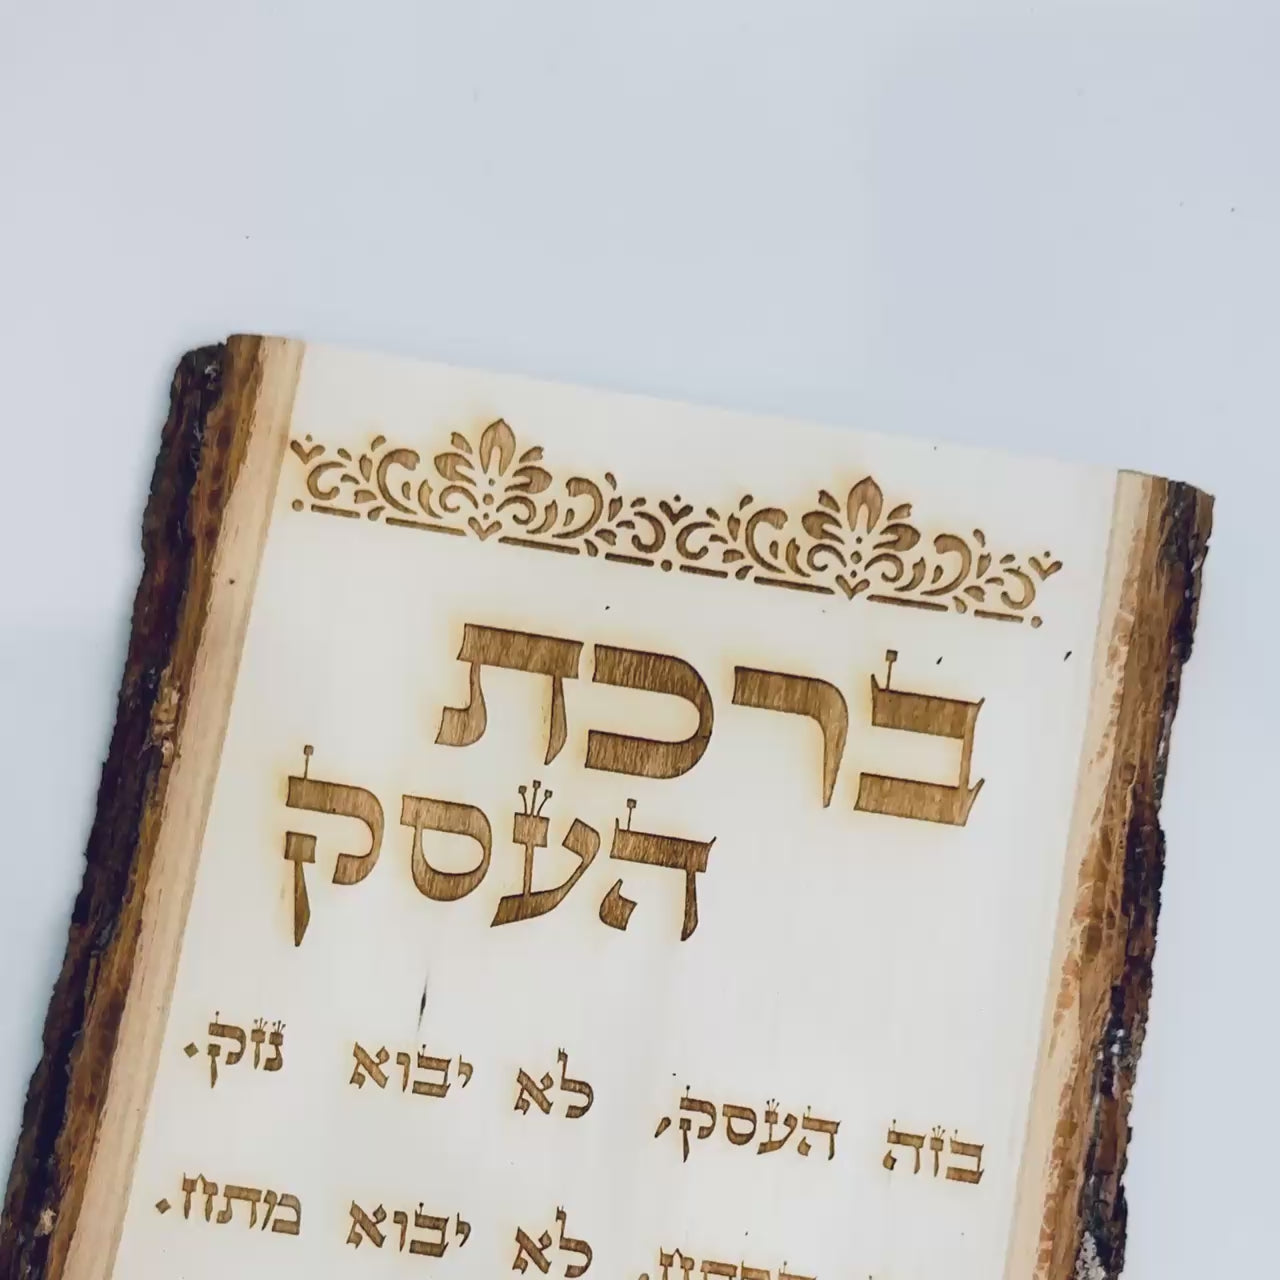 ברכת
העסק
בזה העסק, לא יבוא נזק.
לא יבוא מתוח.